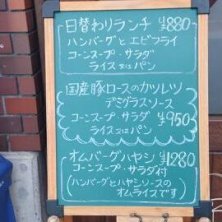 日替わりランチ ¥880
ハンバーグとエビフライ
コーンスープ・サラダ
ライス又はパン
国産豚ロースのカツレツ
デミグラスソース
コーンスープ・サラダ ¥950
ライス又はパン
オムバーグハヤシ ¥1280
コーンスープ・サラダ付
(ハンバーグとハヤシソースの
オムライスです)